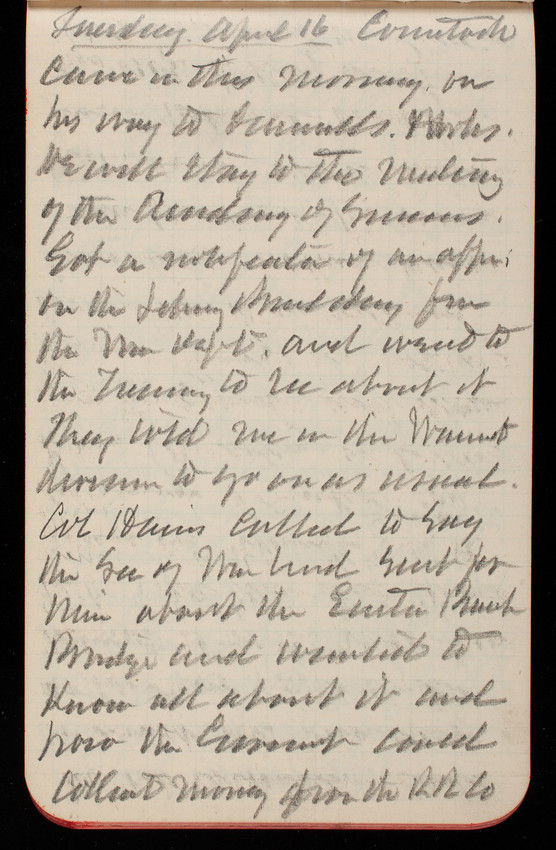 Tuesday April 16 Comstock
Came in this morning. on
his way to
He will stay to the meeting
of the Academy of Sciences.
Got a notification of an appr.
on the Library Building from
the Dept. and went to
the Treasury to see about it
They told me in the Warrant
division to go on as usual.
Col Hains called to say
the Sec of War had sent for
him about the Eastern Branch
Bridge and wanted to
Know all about it and
how the Government could
Collect money from the R R Co